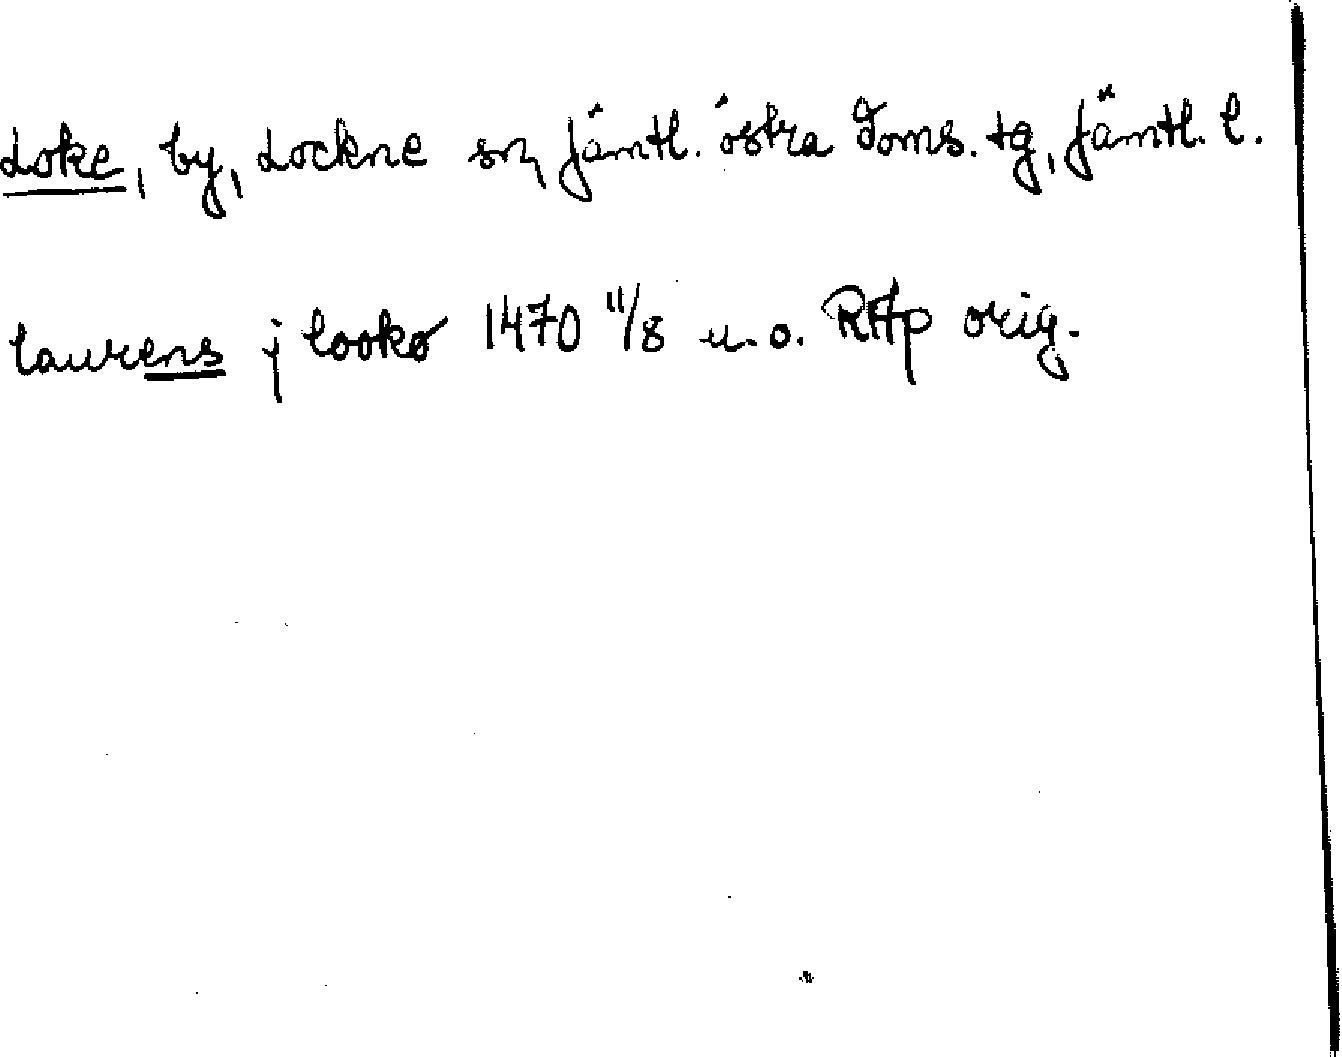 Loke, by, Lockne sn, Jämtl. östra doms. tg, Jämtl. l.
laurens j looko 1470 11/8 u. o. RAp orig.